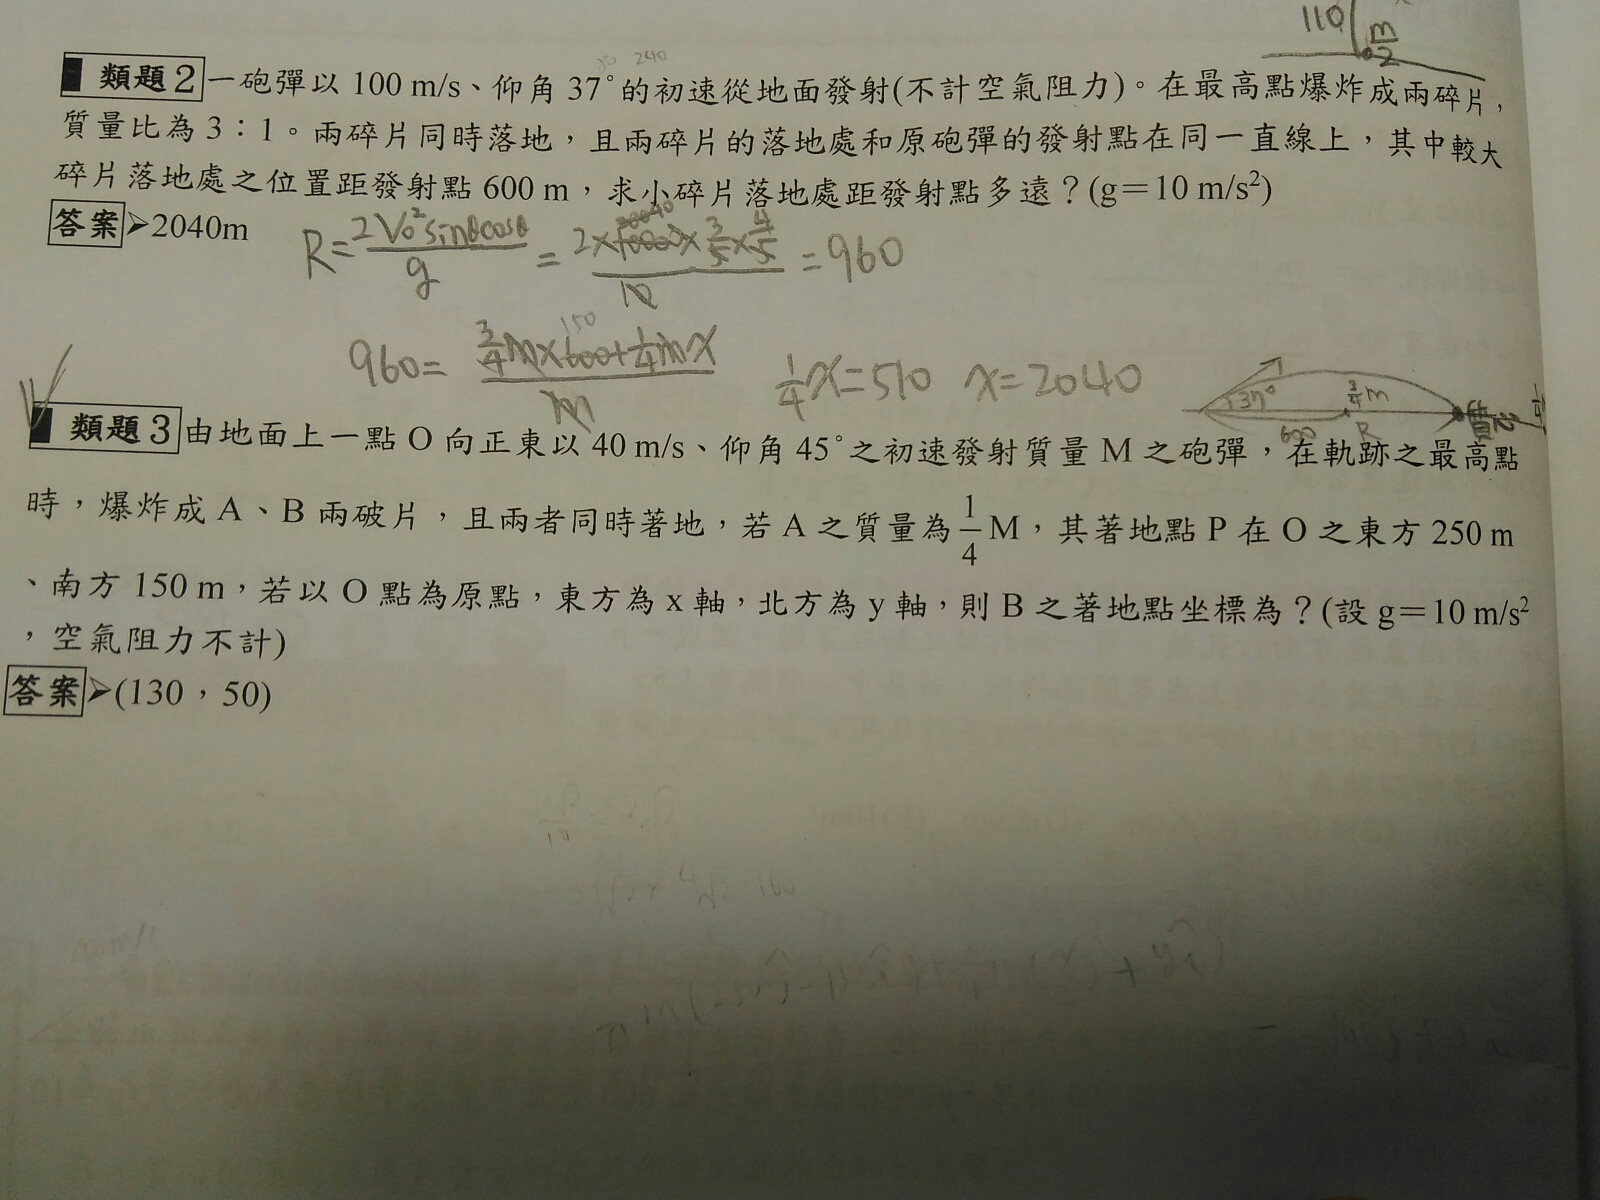 110 m/2
類題2 一砲彈以 100 m/s、仰角 37°的初速從地面發射(不計空氣阻力)。在最高點爆炸成兩碎片,
質量比為 3：1。兩碎片同時落地，且兩碎片的落地處和原砲彈的發射點在同一直線上，其中較大
碎片落地處之位置距發射點 600 m，求小碎片落地處距發射點多遠？(g＝10 m/s²)
答案➢2040m
R=2V₀²sinθcosθ/g = 2×10000×3/5×4/5/10 =960
960= 3/4m×600+1/4mx/m 1/4x=510 x=2040
37° 3/4m 600 R 質心
類題3 由地面上一點 O 向正東以 40 m/s、仰角 45°之初速發射質量 M 之砲彈，在軌跡之最高點
時，爆炸成 A、B 兩破片，且兩者同時著地，若 A 之質量為1/4 M，其著地點 P 在 O 之東方 250 m
、南方 150 m，若以 O 點為原點，東方為 x 軸，北方為 y 軸，則 B 之著地點坐標為？(設 g＝10 m/s²
，空氣阻力不計)
答案➢(130，50)